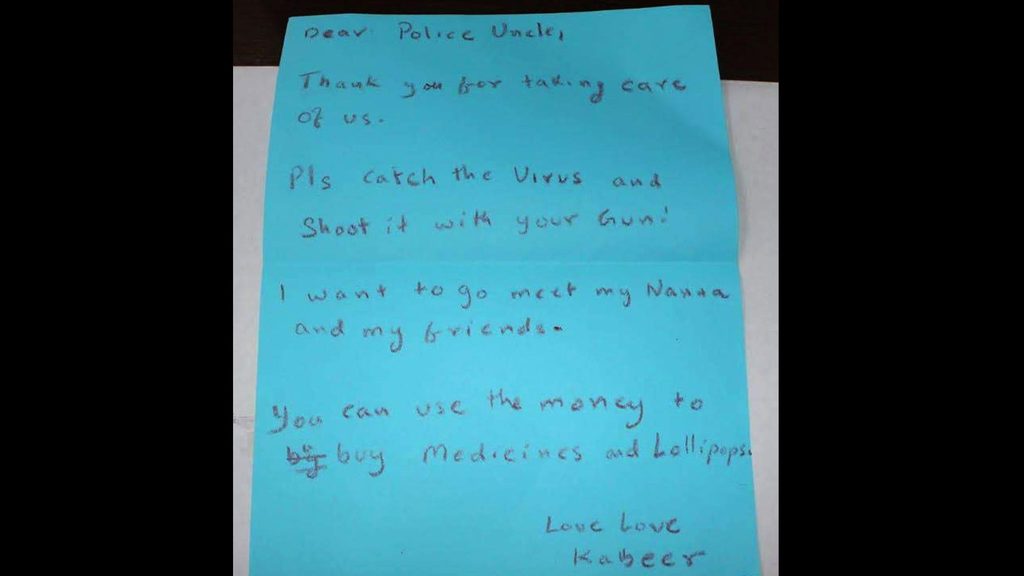 Dear Police Uncle,
Thank you for taking care
of us.
Pls catch the Virus and
Shoot it with your Gun!
I want to go meet my Nanna
and my friends.
You can use the money to
buy Medicines and Lollipops.
Love Love
Kabeer